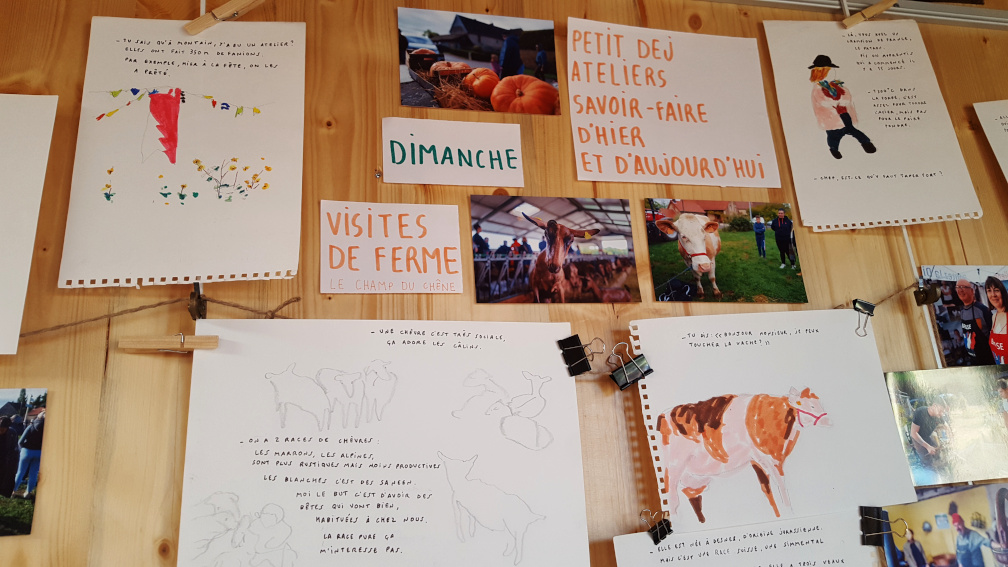 - TU SAIS QU'À MONTAIN, Y'A EU UN ATELIER?
ELLES ONT FAIT 350 M DE FANIONS
PAR EXEMPLE, HIER À LA FÊTE, ON LES
A PRÊTÉ.
DIMANCHE
PETIT DEJ
ATELIERS
SAVOIR-FAIRE
D'HIER
ET D'AUJOURD'HUI
VISITES
DE FERME
LE CHAMP DU CHÊNE
- LÀ, VOUS AVEZ UN
CHAMPION DE FRANCE,
LE PATRON.
PIS UN APPRENTIS
QUI A COMMENCÉ IL
Y A 15 JOURS.
DANS
LA FORGE, C'EST
ASSEZ POUR TORDRE
L'ACIER, MAIS PAS
POUR LE FAIRE
FONDRE.
- CHEF, EST-CE QU'Y FAUT TAPER FORT?
- UNE CHÈVRE C'EST TRÈS SOCIALE,
ÇA ADORE LES CÂLINS.
- ON A 2 RACES DE CHÈVRES :
LES MARRONS, LES ALPINES,
SONT PLUS RUSTIQUES MAIS MOINS PRODUCTIVES
LES BLANCHES C'EST DES SANEEN.
MOI LE BUT C'EST D'AVOIR DES
BÊTES QUI VONT BIEN,
HABITUÉES À CHEZ NOUS.
LA RACE PURE ÇA
M'INTERESSE PAS.
TU DIS : << BONJOUR MONSIEUR, JE PEUX
TOUCHER LA VACHE? >>
- ELLE EST NÉE À DESNES, D'ORIGINE JURASSIENNE.
MAIS C'EST UNE RACE SUISSE, UNE SIMMENTAL
ELLE A TROIS VEAUX